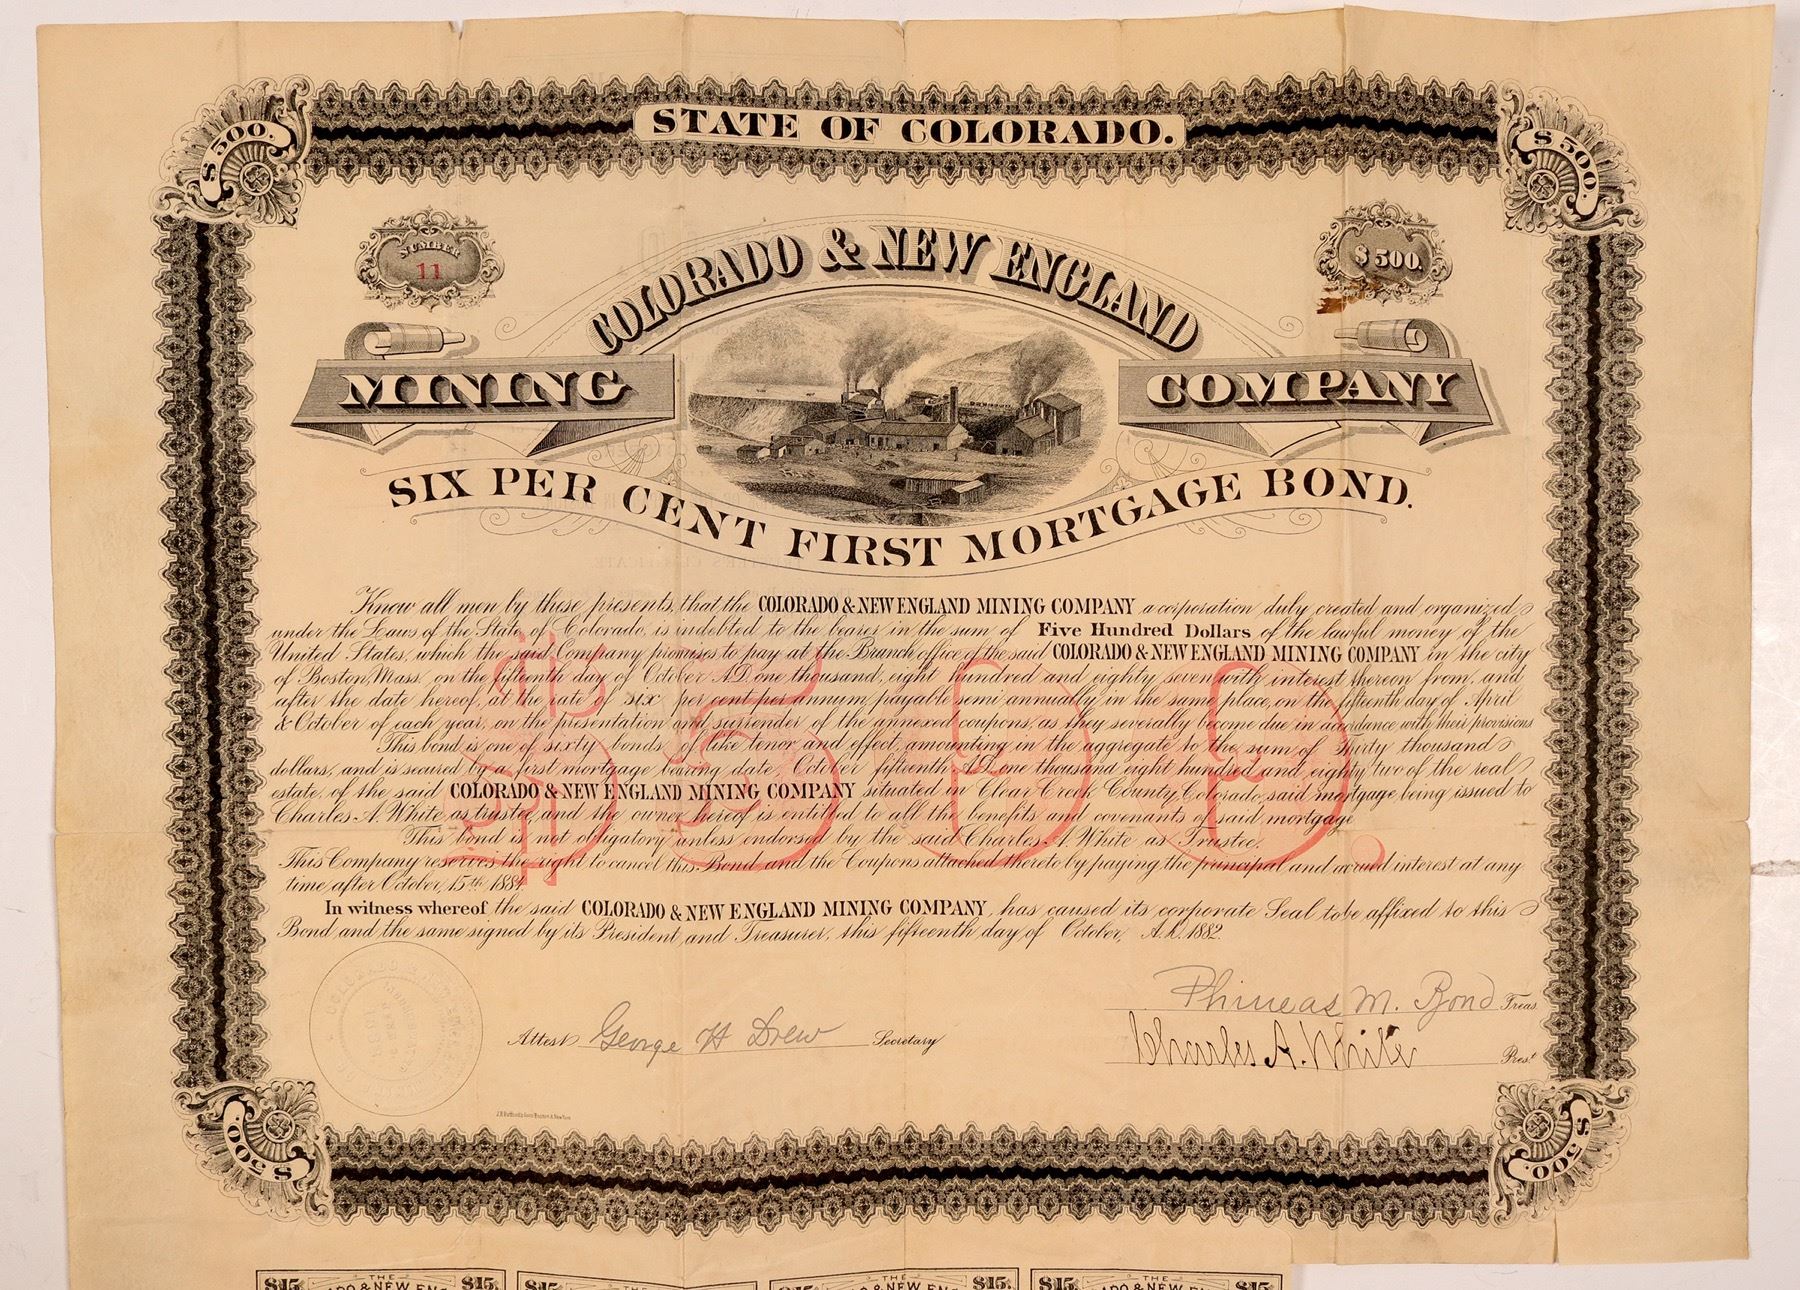 STATE OF COLORADO.
$500.
$500.
NUMBER
11
$500.
COLORADO & NEW ENGLAND
MINING
COMPANY
SIX PER CENT FIRST MORTGAGE BOND.
Know all men by these presents, that the COLORADO & NEW ENGLAND MINING COMPANY a corporation duly created and organized
under the Laws of the State of Colorado, is indebted to the bearer in the sum of Five Hundred Dollars of the lawful money of the
United States, which the said Company promises to pay at the Branch office of the said COLORADO & NEW ENGLAND MINING COMPANY in the city
of Boston, Mass. on the fifteenth day of October A.D. one thousand, eight hundred and eighty seven with interest thereon from, and
after the date hereof, at the rate of six per cent per annum, payable semi annually in the same place, on the fifteenth day of April
& October of each year, on the presentation and surrender of the annexed coupons, as they severally become due in accordance with their provisions
This bond is one of sixty bonds of like tenor and effect, amounting in the aggregate to the sum of Thirty thousand
dollars, and is secured by a first mortgage bearing date, October fifteenth A.D. one thousand eight hundred and eighty two of the real
estate, of the said COLORADO & NEW ENGLAND MINING COMPANY situated in Clear Creek County, Colorado, said mortgage, being issued to
Charles A. White as trustee, and the owner hereof is entitled to all the benefits and covenants of said mortgage
This bond is not obligatory unless endorsed by the said Charles A. White as Trustee.
This Company reserves the right to cancel this Bond and the Coupons attached thereto by paying the principal and accrued interest at any
time after October, 15th 1884.
$500.
In witness whereof, the said COLORADO & NEW ENGLAND MINING COMPANY, has caused its corporate Seal to be affixed to this
Bond and the same signed by its President, and Treasurer, this fifteenth day of October, A.D. 1882.
Phineas M. Bond Treas.
Attest George H Drew Secretary
Charles A. White Prest
$500.
$500.
$15. THE $15.
$15.
$15. THE $15.
$15. THE $15.
ADO & NEW EN
ADO & NEW EN
ADO & NEW EN